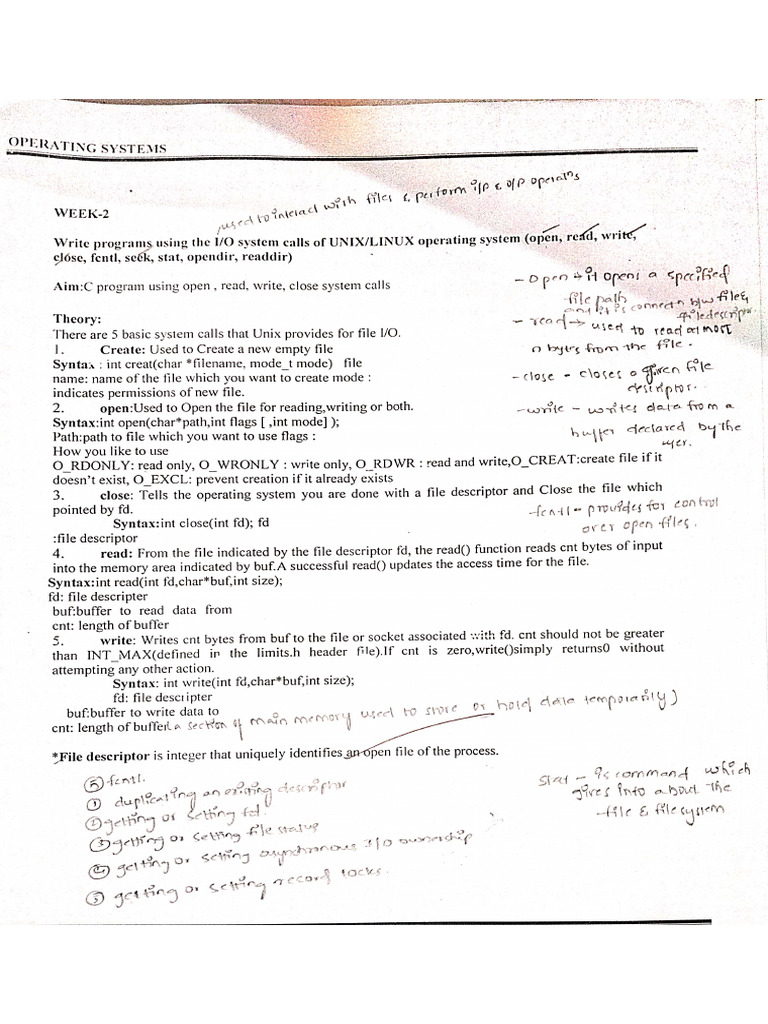 OPERATING SYSTEMS
used to interact with files & perform i/p & o/p operatns
WEEK-2
Write programs using the I/O system calls of UNIX/LINUX operating system (open, read, write,
close, fcntl, seek, stat, opendir, readdir)
Aim:C program using open , read, write, close system calls
- open → it opens a specified
file path
and it is connectn b/w files &
filedescriptor
- read → used to read at most
n bytes from the file.
- close - closes a given file
descriptor.
- write - writes data from a
buffer declared by the
user.
Theory:
There are 5 basic system calls that Unix provides for file I/O.
1. Create: Used to Create a new empty file
Syntax : int creat(char *filename, mode_t mode) file
name: name of the file which you want to create mode :
indicates permissions of new file.
2. open:Used to Open the file for reading,writing or both.
Syntax:int open(char*path,int flags [ ,int mode] );
Path:path to file which you want to use flags :
How you like to use
O_RDONLY: read only, O_WRONLY : write only, O_RDWR : read and write,O_CREAT:create file if it
doesn't exist, O_EXCL: prevent creation if it already exists
3. close: Tells the operating system you are done with a file descriptor and Close the file which
pointed by fd.
Syntax:int close(int fd); fd
:file descriptor
-fcntl - provides for control
over open files.
4. read: From the file indicated by the file descriptor fd, the read() function reads cnt bytes of input
into the memory area indicated by buf.A successful read() updates the access time for the file.
Syntax:int read(int fd,char*buf,int size);
fd: file descripter
buf:buffer to read data from
cnt: length of buffer
5. write: Writes cnt bytes from buf to the file or socket associated with fd. cnt should not be greater
than INT_MAX(defined in the limits.h header file).If cnt is zero,write()simply returns0 without
attempting any other action.
Syntax: int write(int fd,char*buf,int size);
fd: file descripter
buf:buffer to write data to
cnt: length of buffer(a section of main memory used to store or hold data temporarily)
*File descriptor is integer that uniquely identifies an open file of the process.
⑤ fcntl.
① duplicating an existing descriptor
② getting or setting fd.
③ getting or setting file status
④ getting or setting asynchronous I/O ownership
⑤ getting or setting record locks.
stat - is command which
gives into about the
file & filesystem